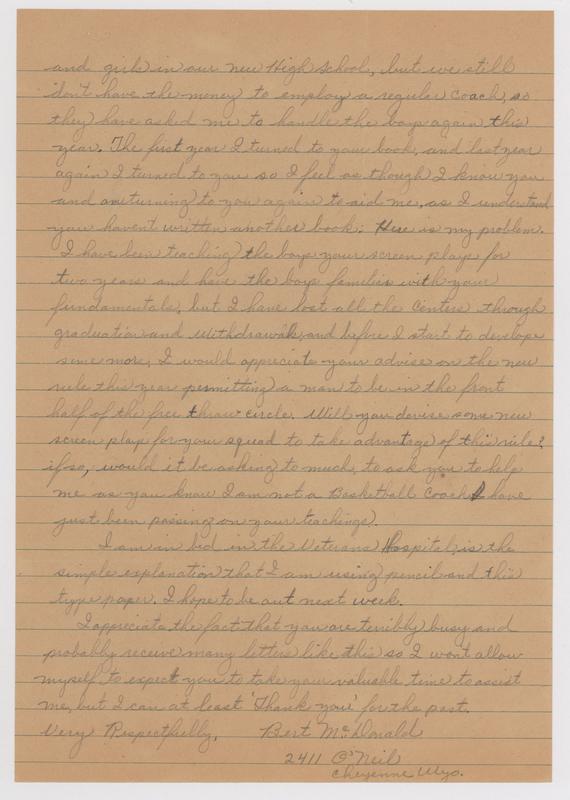 and girls in our new High School, but we still
don't have the money to employ a regular Coach, so
they have asked me to handle the boys again this
year. The first year I turned to your book, and last year
again I turned to you so I feel as though I know you
and am turning to you again to aid me, as I understand
you havent written another book. Here is my problem.
I have been teaching the boys your screen plays for
two years and have the boys familier with your
fundamentals, but I have lost all the Centers through
graduation and withdrawals, and before I start to develope
some more, I would appreciate your advise on the new
rule this year permitting a man to be in the front
half of the free throw circle. Will you devise some new
screen plays for your squad to take advantage of this rule?
if so, would it be asking to much, to ask you to help
me as you know I am not a Basketball Coach I have
just been passing on your teachings.
I am in bed in the Veterans Hospital, is the
simple explanation that I am using pencil and this
type paper. I hope to be out next week.
I appreciate the fact that you are terribly busy and
probably receive many letters like this so I wont allow
myself to expect you to take your valuable time to assist
me, but I can at least 'Thank you' for the past.
Very Respectfully, Bert McDonald
2411 O'Neil
Cheyenne Wyo.